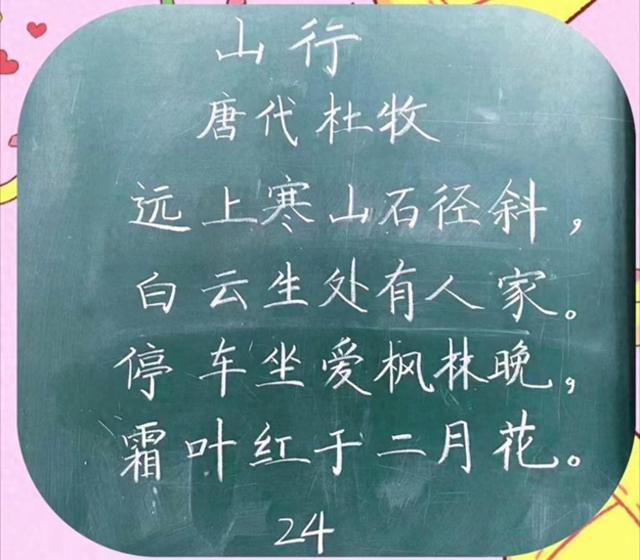 山行
唐代杜牧
远上寒山石径斜，
白云生处有人家。
停车坐爱枫林晚，
霜叶红于二月花。
24